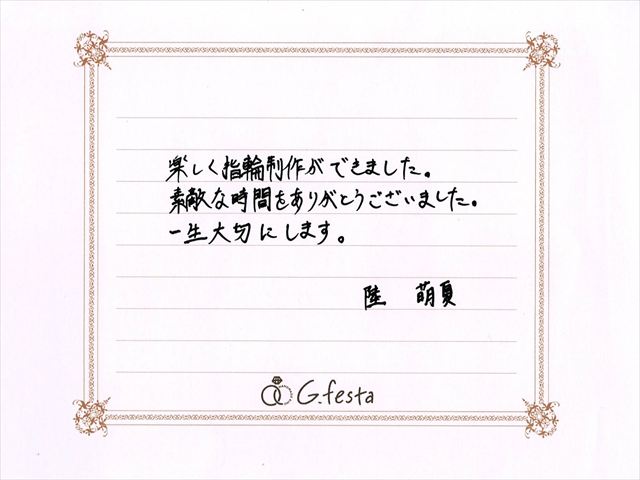 楽しく指輪制作ができました。
素敵な時間をありがとうございました。
一生大切にします。
陸　萌夏
G.festa